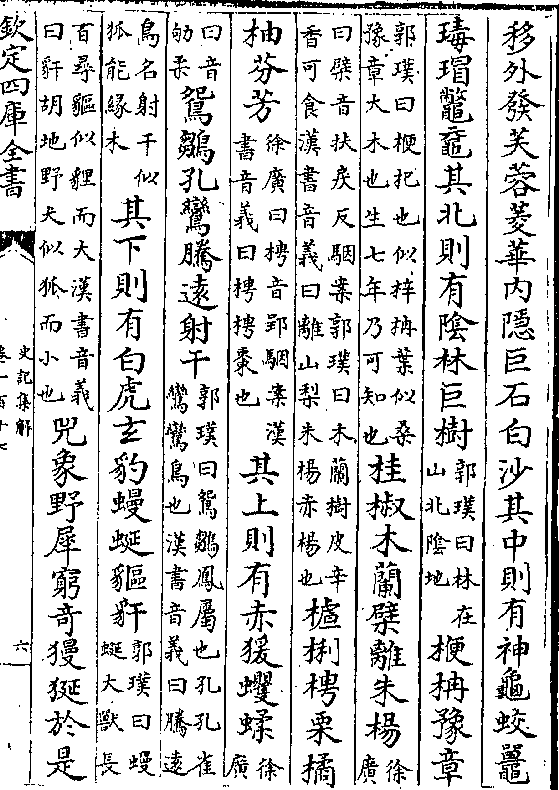 移外發芙蓉菱華内隱巨石白沙其中則有神龜蛟鼉
瑇瑁鼈黿其北則有隂林巨樹郭璞曰林在山北隂地楩柟豫章
郭璞曰楩杞也似梓柟葉似桑豫章大木也生七年乃可知也桂椒木蘭檗離朱楊徐廣
曰檗音扶戾反駰案郭璞曰木蘭樹皮辛香可食漢書音義曰離山梨朱楊赤楊也樝梸梬栗橘
柚芬芳徐廣曰梬音郢駰案漢書音義曰梬梬棗也其上則有赤猨蠷蝚徐廣
曰音劬柔鵷鶵孔鸞騰遠射干郭璞曰鵷鶵鳳屬也孔孔雀鸞鸞鳥也漢書音義曰騰遠
鳥名射干似狐能緣木其下則有白虎玄豹蟃蜒貙豻郭璞曰蟃蜒大獸長
百尋貙似貍而大漢書音義曰豻胡地野犬似狐而小也兕象野犀窮奇獌狿於是
欽定四庫全書
史記集解
卷一百十七
六